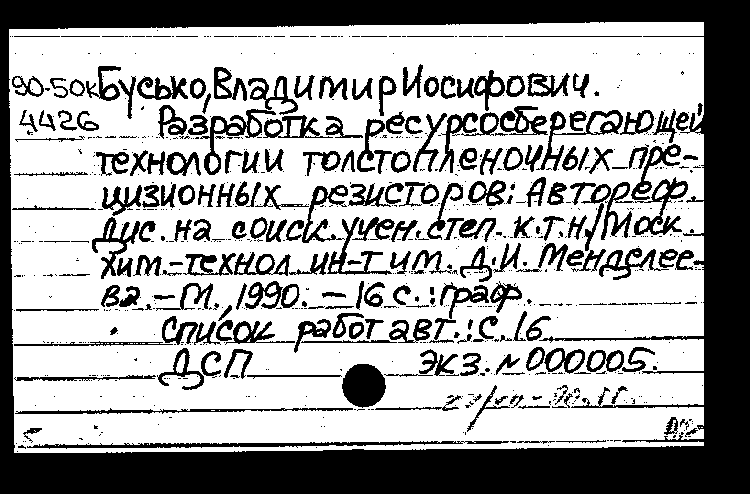 90-50к Бусько, Владимир Иосифович.
4426 Разработка ресурсосберегающей
технологии толстопленочных пре-
цизионных резисторов: Автореф.
дис. на соиск. учен. степ. к.т.н./Моск.
хим.-технол. ин-т им. Д.И. Менделее-
ва.-М., 1990. - 16 с.: граф.
Список работ авт.: с. 16.
ДСП экз. № 000005.